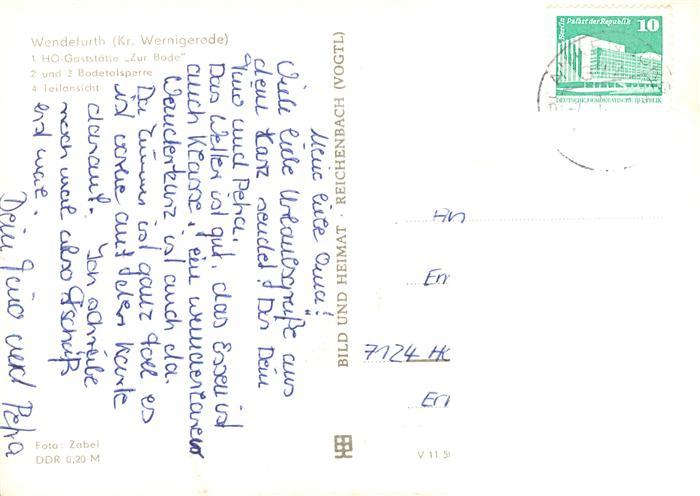 Wendefurth (Kr. Wernigerode)
1 HO-Gaststätte „Zur Bode"
2 und 3 Bodetalsperre
4 Teilansicht
Meine liebe Oma!
Viele liebe Urlaubsgrüße aus
dem Harz sendet Dir Dein
Tino und Petra.
Das Wetter ist gut, das Essen ist
auch Klasse, ein wunderbarer
ist auch da.
Das Zimmer ist ganz toll es
ist vorne auf der Karte
darauf. Ich schreibe
noch mal also Tschüß
erst mal.
Dein Tino und Petra
BILD UND HEIMAT · REICHENBACH (VOGTL)
Foto: Zabel
DDR 0,20 M
V 11 5
Berlin Palast der Republik
10
DEUTSCHE DEMOKRATISCHE REPUBLIK
An
Er
7124 H
Er